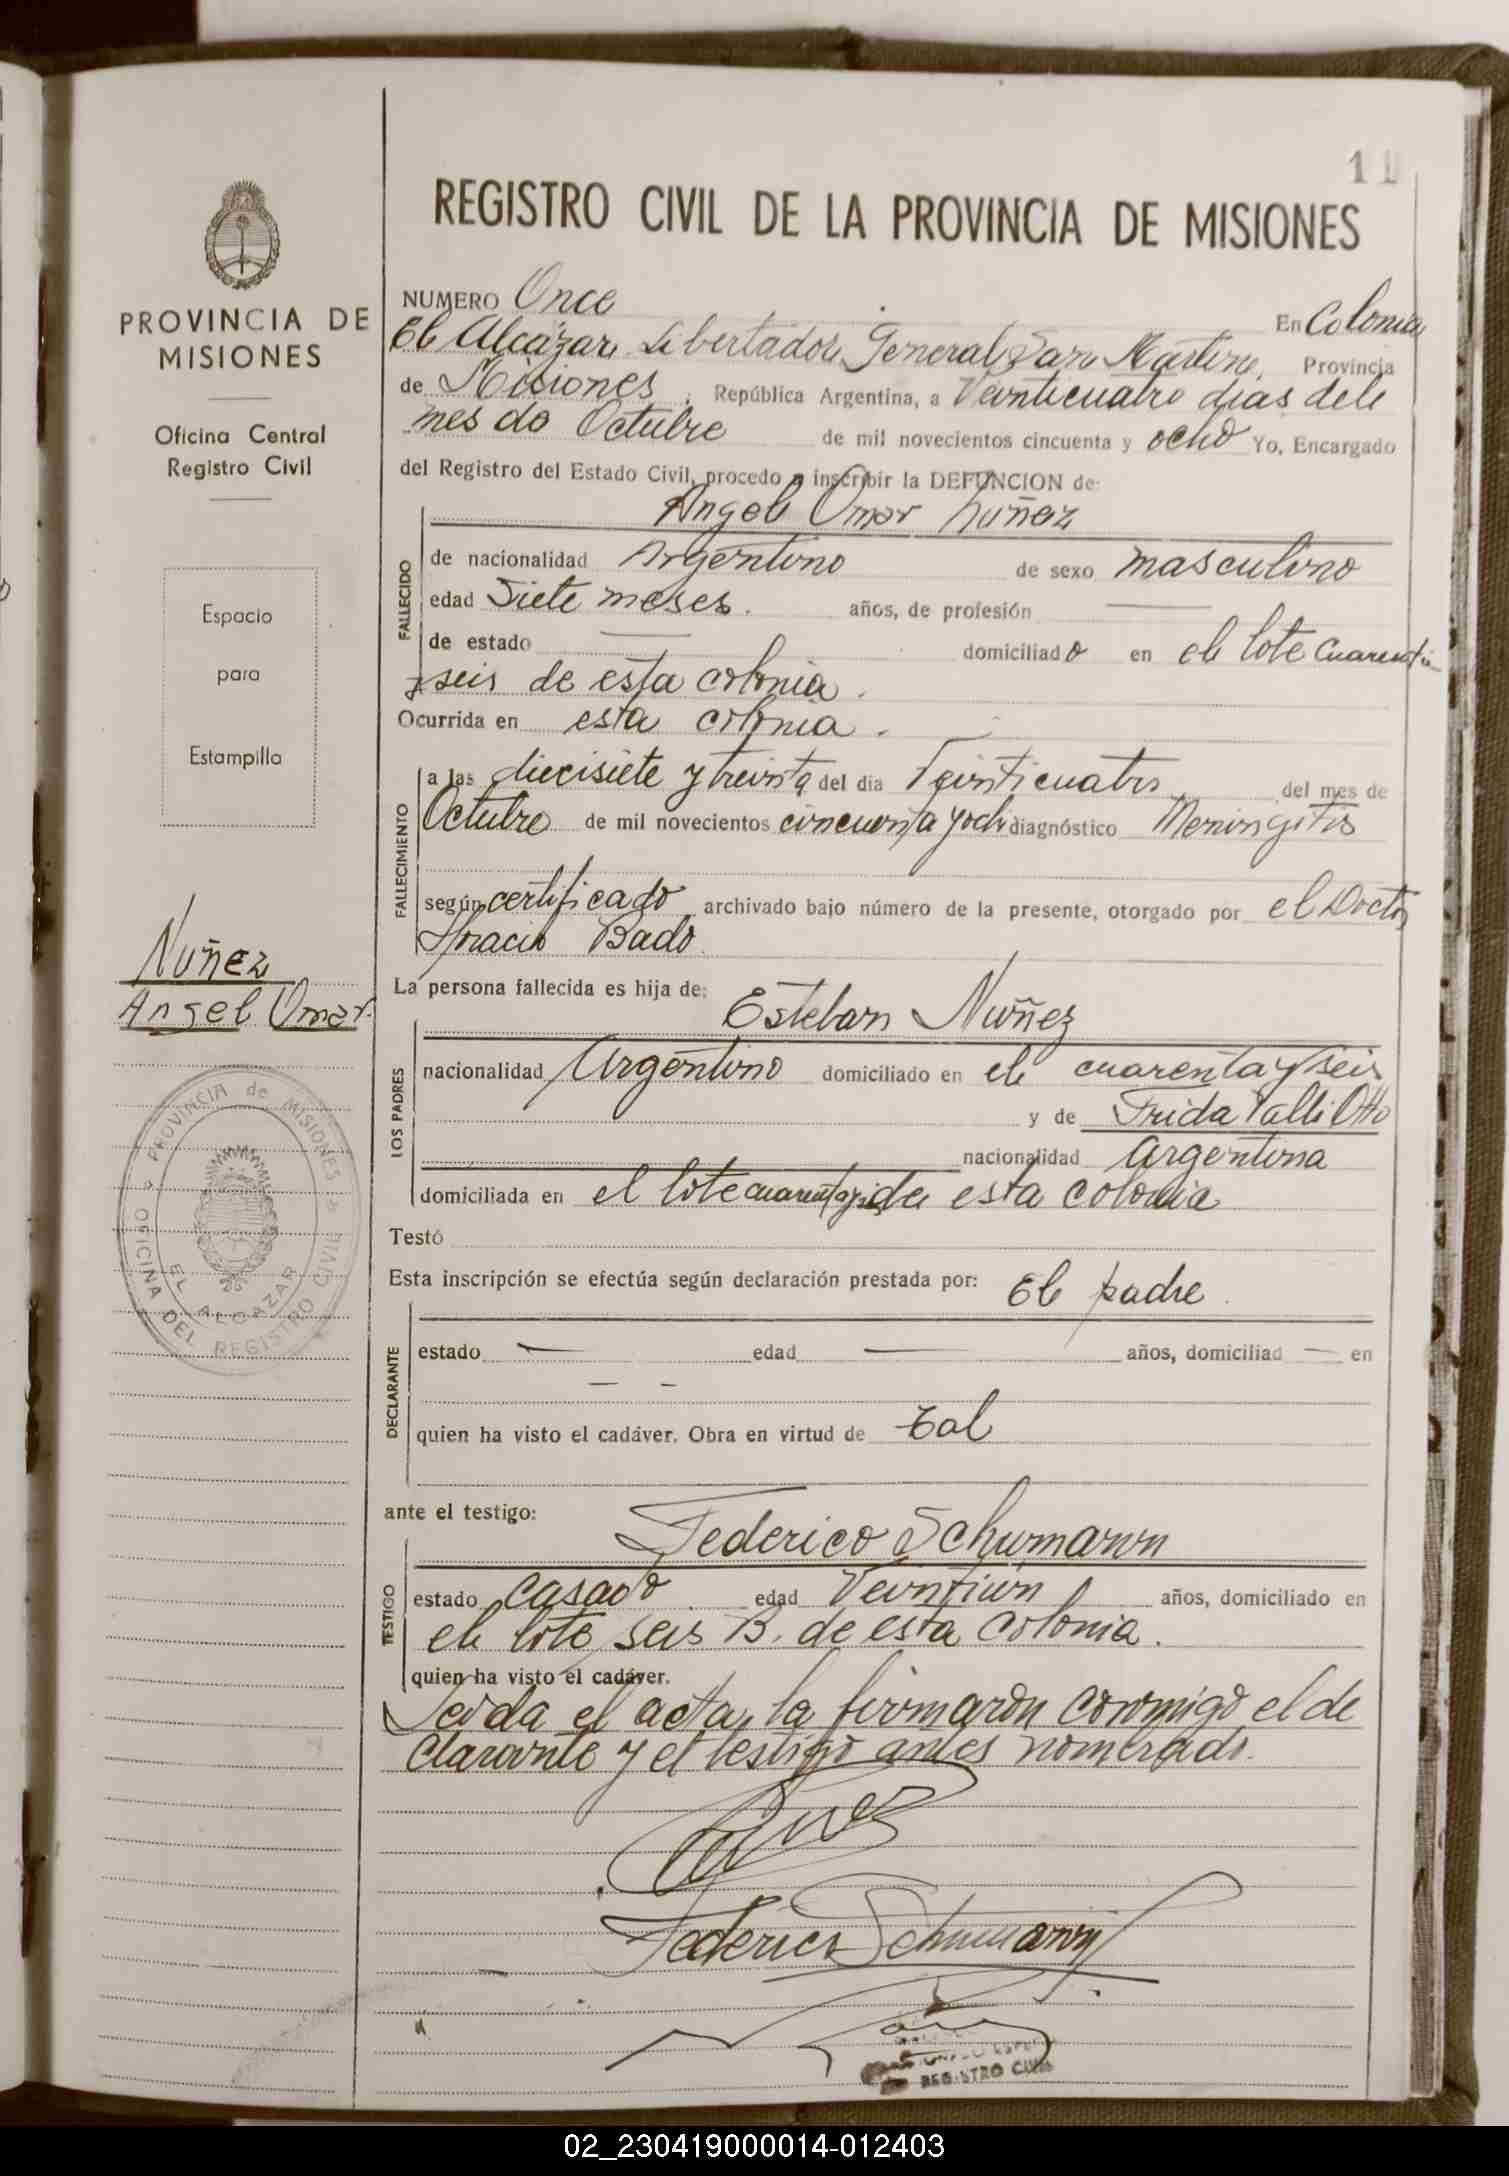 11
REGISTRO CIVIL DE LA PROVINCIA DE MISIONES
PROVINCIA DE
MISIONES
Oficina Central
Registro Civil
Espacio
para
Estampilla
Nuñez
Angel Omar
PROVINCIA de MISIONES
OFICINA DEL REGISTRO CIVIL
EL ALCAZAR
NUMERO Once En Colonia
El Alcázar, Libertador General San Martin, Provincia
de Misiones, República Argentina, a Veinticuatro dias del
mes de Octubre de mil novecientos cincuenta y ocho Yo, Encargado
del Registro del Estado Civil, procedo a inscribir la DEFUNCION de:
Angel Omar Nuñez
FALLECIDO
de nacionalidad Argentino de sexo masculino
edad Siete meses. años, de profesión ——
de estado —— domiciliado en el lote cuarenta
y seis de esta colonia.
Ocurrida en esta colonia.
FALLECIMIENTO
a las diecisiete y treinta del dia Veinticuatro del mes de
Octubre de mil novecientos cincuenta y ocho diagnóstico Meningitis
según certificado archivado bajo número de la presente, otorgado por el Doctor
Horacio Bado
La persona fallecida es hija de:
Esteban Nuñez
LOS PADRES
nacionalidad Argentino domiciliado en el cuarenta y seis
y de Frida Valli Otto
nacionalidad Argentina
domiciliada en el lote cuarenta y seis de esta colonia
Testó
Esta inscripción se efectúa según declaración prestada por: El padre
DECLARANTE
estado — edad — años, domiciliad — en
— —
quien ha visto el cadáver. Obra en virtud de tal
ante el testigo:
Federico Schumann
TESTIGO
estado casado edad Veintiún años, domiciliado en
el lote seis B. de esta colonia.
quien ha visto el cadáver.
Leida el acta, la firmaron conmigo el de
clarante y el testigo antes nombrado.
Federico Schumann
REGISTRO CIVIL
02_230419000014-012403